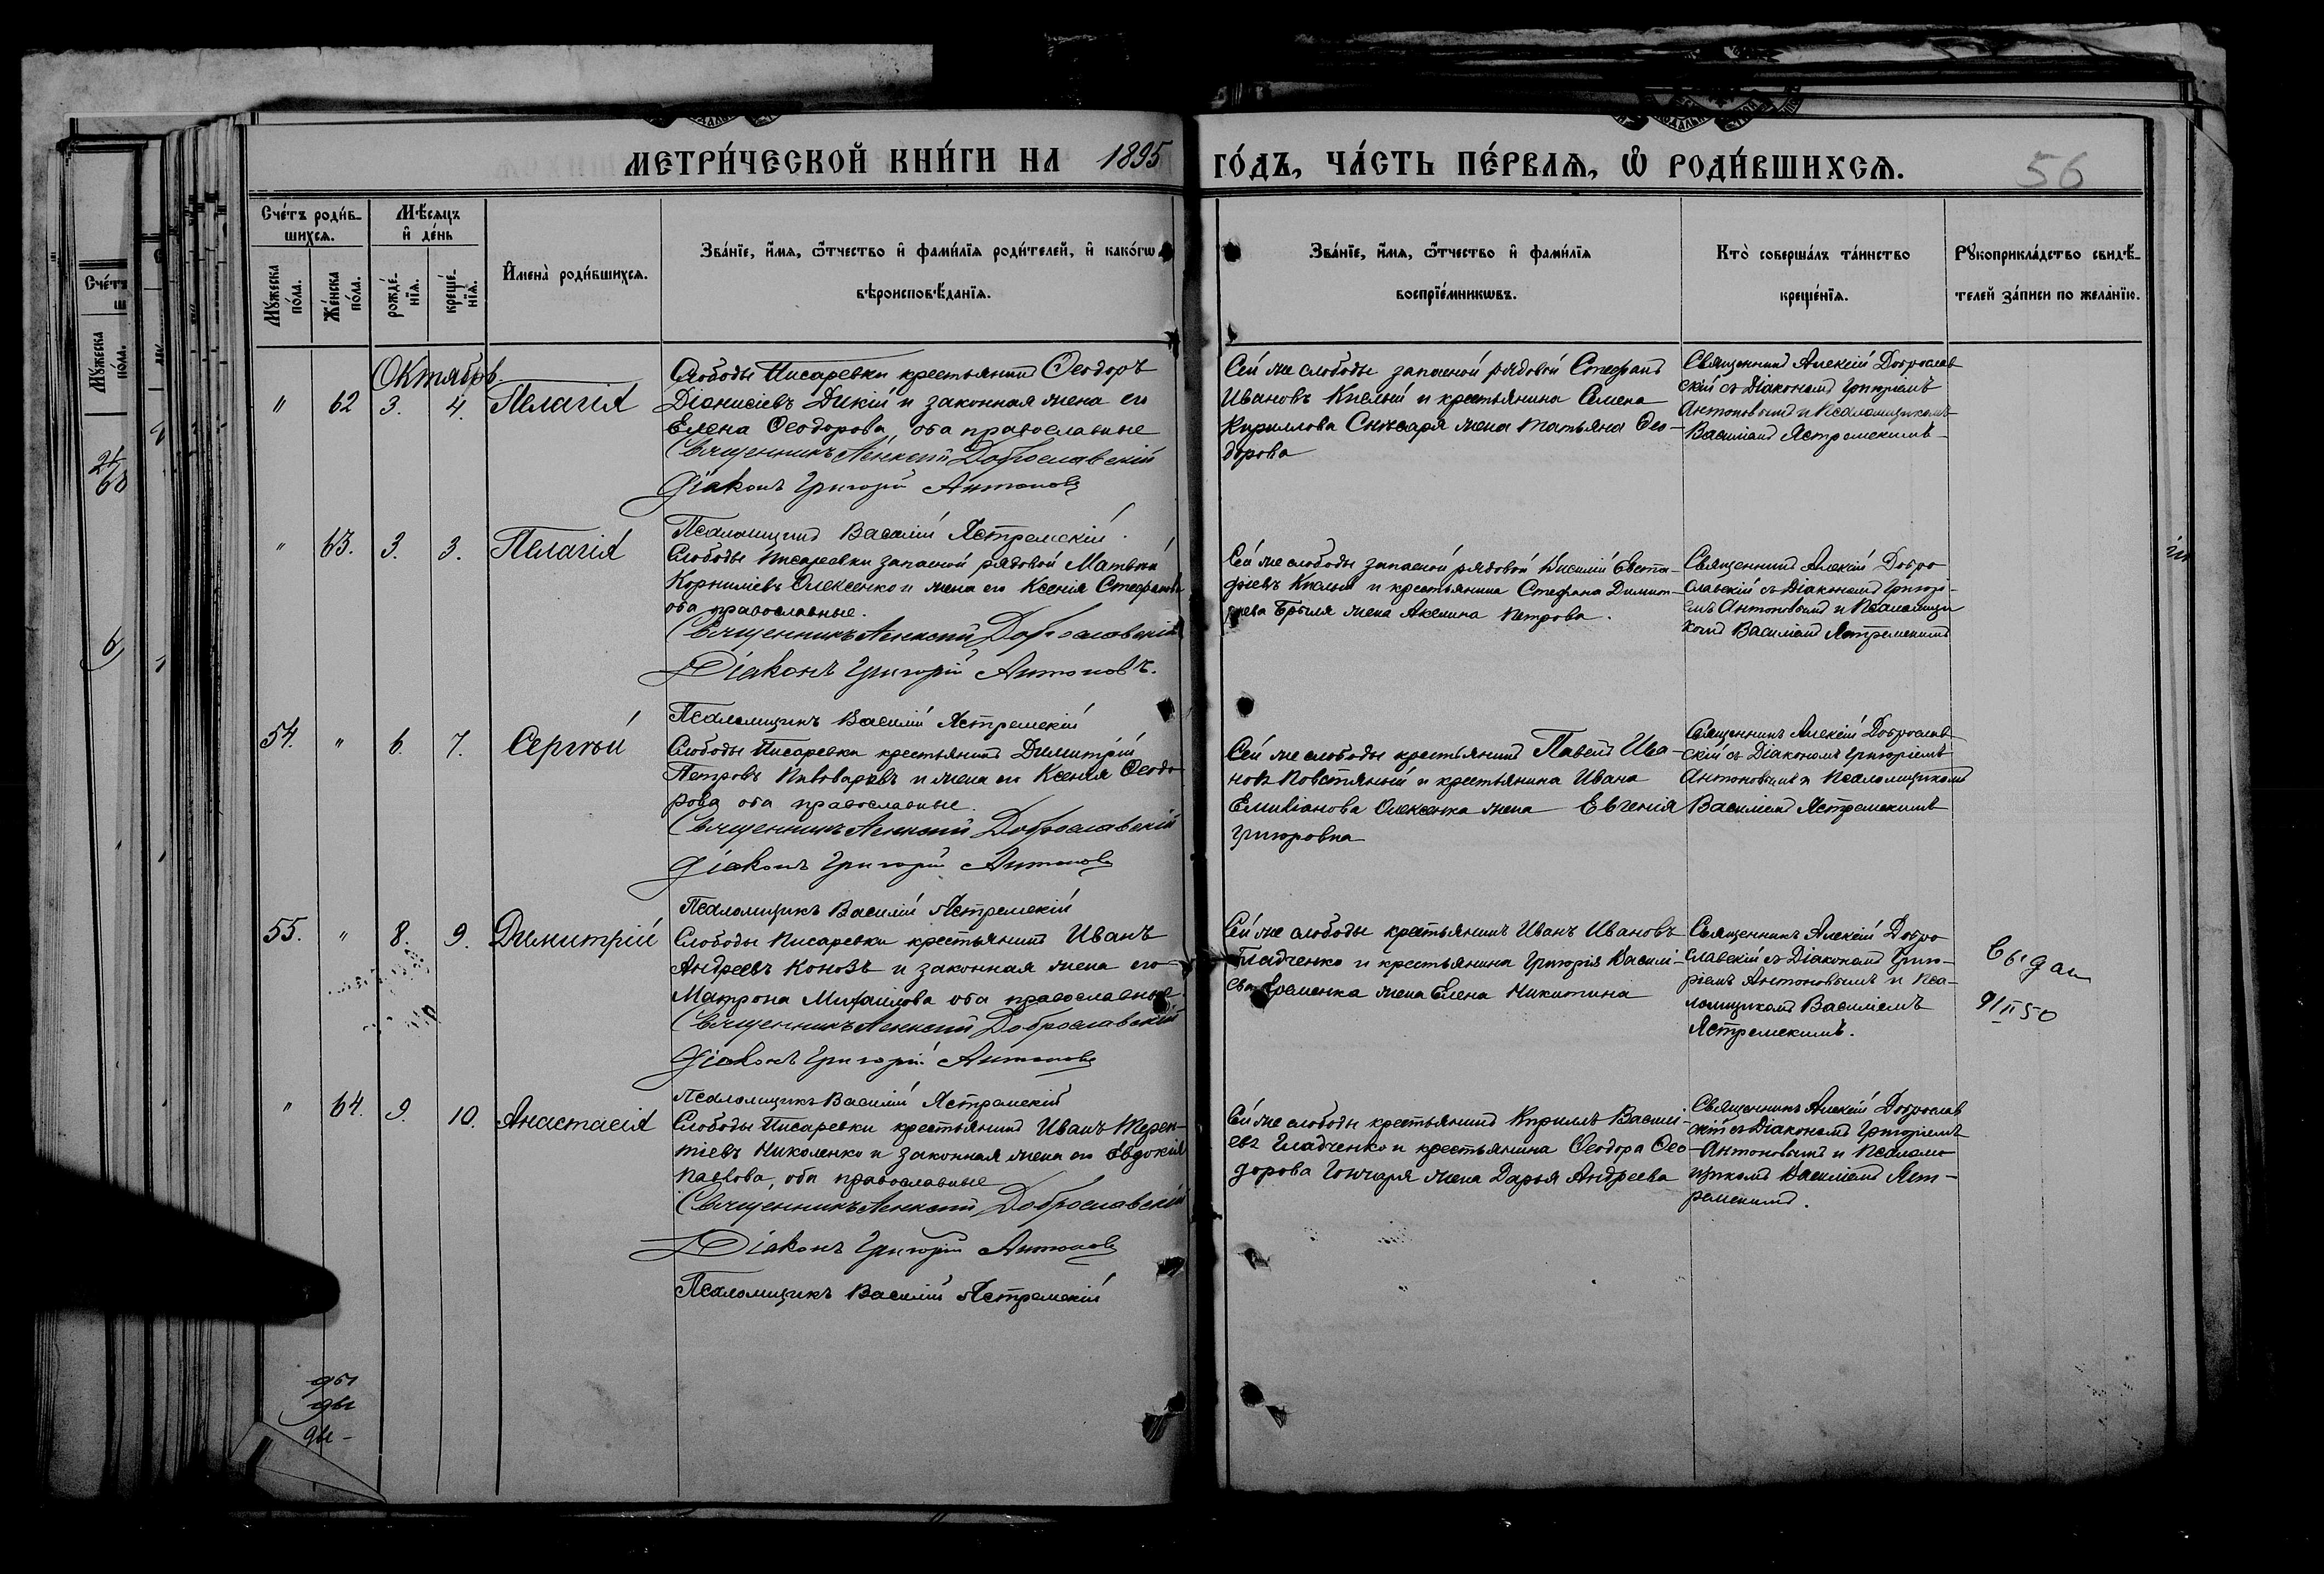 МЕТРИ́ЧЕСКОЙ КНИ́ГИ НА 1895 ГО́ДЪ, ЧА́СТЬ ПЕ́РВАѦ, Ѡ҆ РОДИ́ВШИХСѦ.
56
Сче́тъ роди́в-
шихсѧ.
Мꙋ́жеска
по́ла.
Же́нска
по́ла.
Мѣ́сѧцъ
и҆ де́нь
рожде́-
нїѧ.
креще́-
нїѧ.
И҆мена̀ роди́вшихсѧ.
Зва́нїе, и҆́мѧ, ѻ҆́тчество и҆ фами́лїѧ роди́телей, и҆ како́гѡ
вѣроисповѣ́данїѧ.
Зва́нїе, и҆́мѧ, ѻ҆́тчество и҆ фами́лїѧ
воспрїе́мникѡвъ.
Кто̀ соверша́лъ та́инство
креще́нїѧ.
Рꙋкоприкла́дство свидѣ́-
телей за́писи по жела́нїю.
Октябрь.
" 62 3. 4. Пелагія
Слободы Писаревки крестьянинъ Ѳеодоръ
Діонисіевъ Дикій и законная жена его
Елена Ѳеодорова, оба православные
Священникъ Алексій Доброславскій
Діаконъ Григорій Антоновъ
Псаломщикъ Василій Ястремскій.
Сей же слободы запасной рядовой Стефанъ
Ивановъ Кислый и крестьянина Семена
Кириллова Снѣсаря жена Татьяна Ѳео-
дорова
Священникъ Алексій Доброслав
скій съ Діакономъ Григоріемъ
Антоновымъ и Псаломщикомъ
Василіемъ Ястремскимъ
" 63. 3. 3. Пелагія
Слободы Писаревки запасной рядовой Матвѣй
Корниліевъ Олексенко и жена его Ксенія Стефанова
оба православные.
Священникъ Алексій Доброславскій
Діаконъ Григорій Антоновъ.
Псаломщикъ Василій Ястремскій
Сей же слободы запасной рядовой Василій Евста-
фіевъ Кислый и крестьянина Стефана Димит-
ріева Брыля жена Акилина Петрова.
Священникъ Алексій Добро
славскій съ Діакономъ Григорі-
емъ Антоновымъ и Псаломщи
комъ Василіемъ Ястремскимъ
54. " 6. 7. Сергѣй
Слободы Писаревки крестьянинъ Димитрій
Петровъ Пивоваревъ и жена его Ксенія Ѳеодо-
рова оба православные.
Священникъ Алексій Доброславскій
Діаконъ Григорій Антоновъ
Псаломщикъ Василій Ястремскій
Сей же слободы крестьянинъ Павелъ Ива-
новъ Повстяный и крестьянина Ивана
Емиліанова Олексенка жена Евгенія
Григоровна
Священникъ Алексій Доброслав
скій съ Діакономъ Григоріемъ
Антоновымъ и Псаломщикомъ
Василіемъ Ястремскимъ
55. " 8. 9. Димитрій
Слободы Писаревки крестьянинъ Иванъ
Андреевъ Коновъ и законная жена его
Матрона Михаилова оба православные
Священникъ Алексій Доброславскій
Діаконъ Григорій Антоновъ
Псаломщикъ Василій Ястремскій
Сей же слободы крестьянинъ Иванъ Ивановъ
Гладченко и крестьянина Григорія Василі-
ева Еременка жена Елена Никитина
Священникъ Алексій Добро
славскій съ Діакономъ Григо-
ріемъ Антоновымъ и Пса-
ломщикомъ Василіемъ
Ястремскимъ.
9/II 50
" 64. 9. 10. Анастасія
Слободы Писаревки крестьянинъ Иванъ Терен-
тіевъ Николенко и законная жена его Евдокія
Павлова, оба православные
Священникъ Алексій Доброславскій
Діаконъ Григорій Антоновъ
Псаломщикъ Василій Ястремскій
Сей же слободы крестьянинъ Кириллъ Василі-
евъ Гладченко и крестьянина Ѳеодора Ѳео-
дорова Гончаря жена Дарья Андреева
Священникъ Алексій Доброслав
скій съ Діакономъ Григоріемъ
Антоновымъ и Псаломо
щикомъ Василіемъ Яст-
ремскимъ.